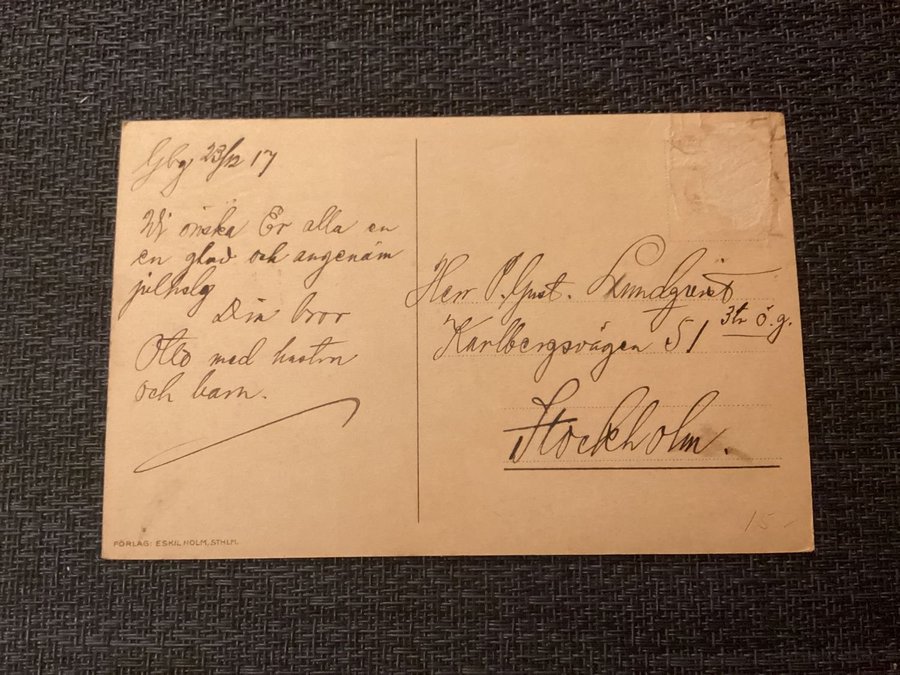 Gbg 23/12 17
Vi önska Er alla en
en glad och angenäm
julhelg
Din bror
Otto med hustru
och barn.
Herr P. Gust. Lundqvist
Karlbergsvägen 51 3tr ö. g.
Stockholm.
FÖRLAG: ESKIL HOLM, STHLM.
15-